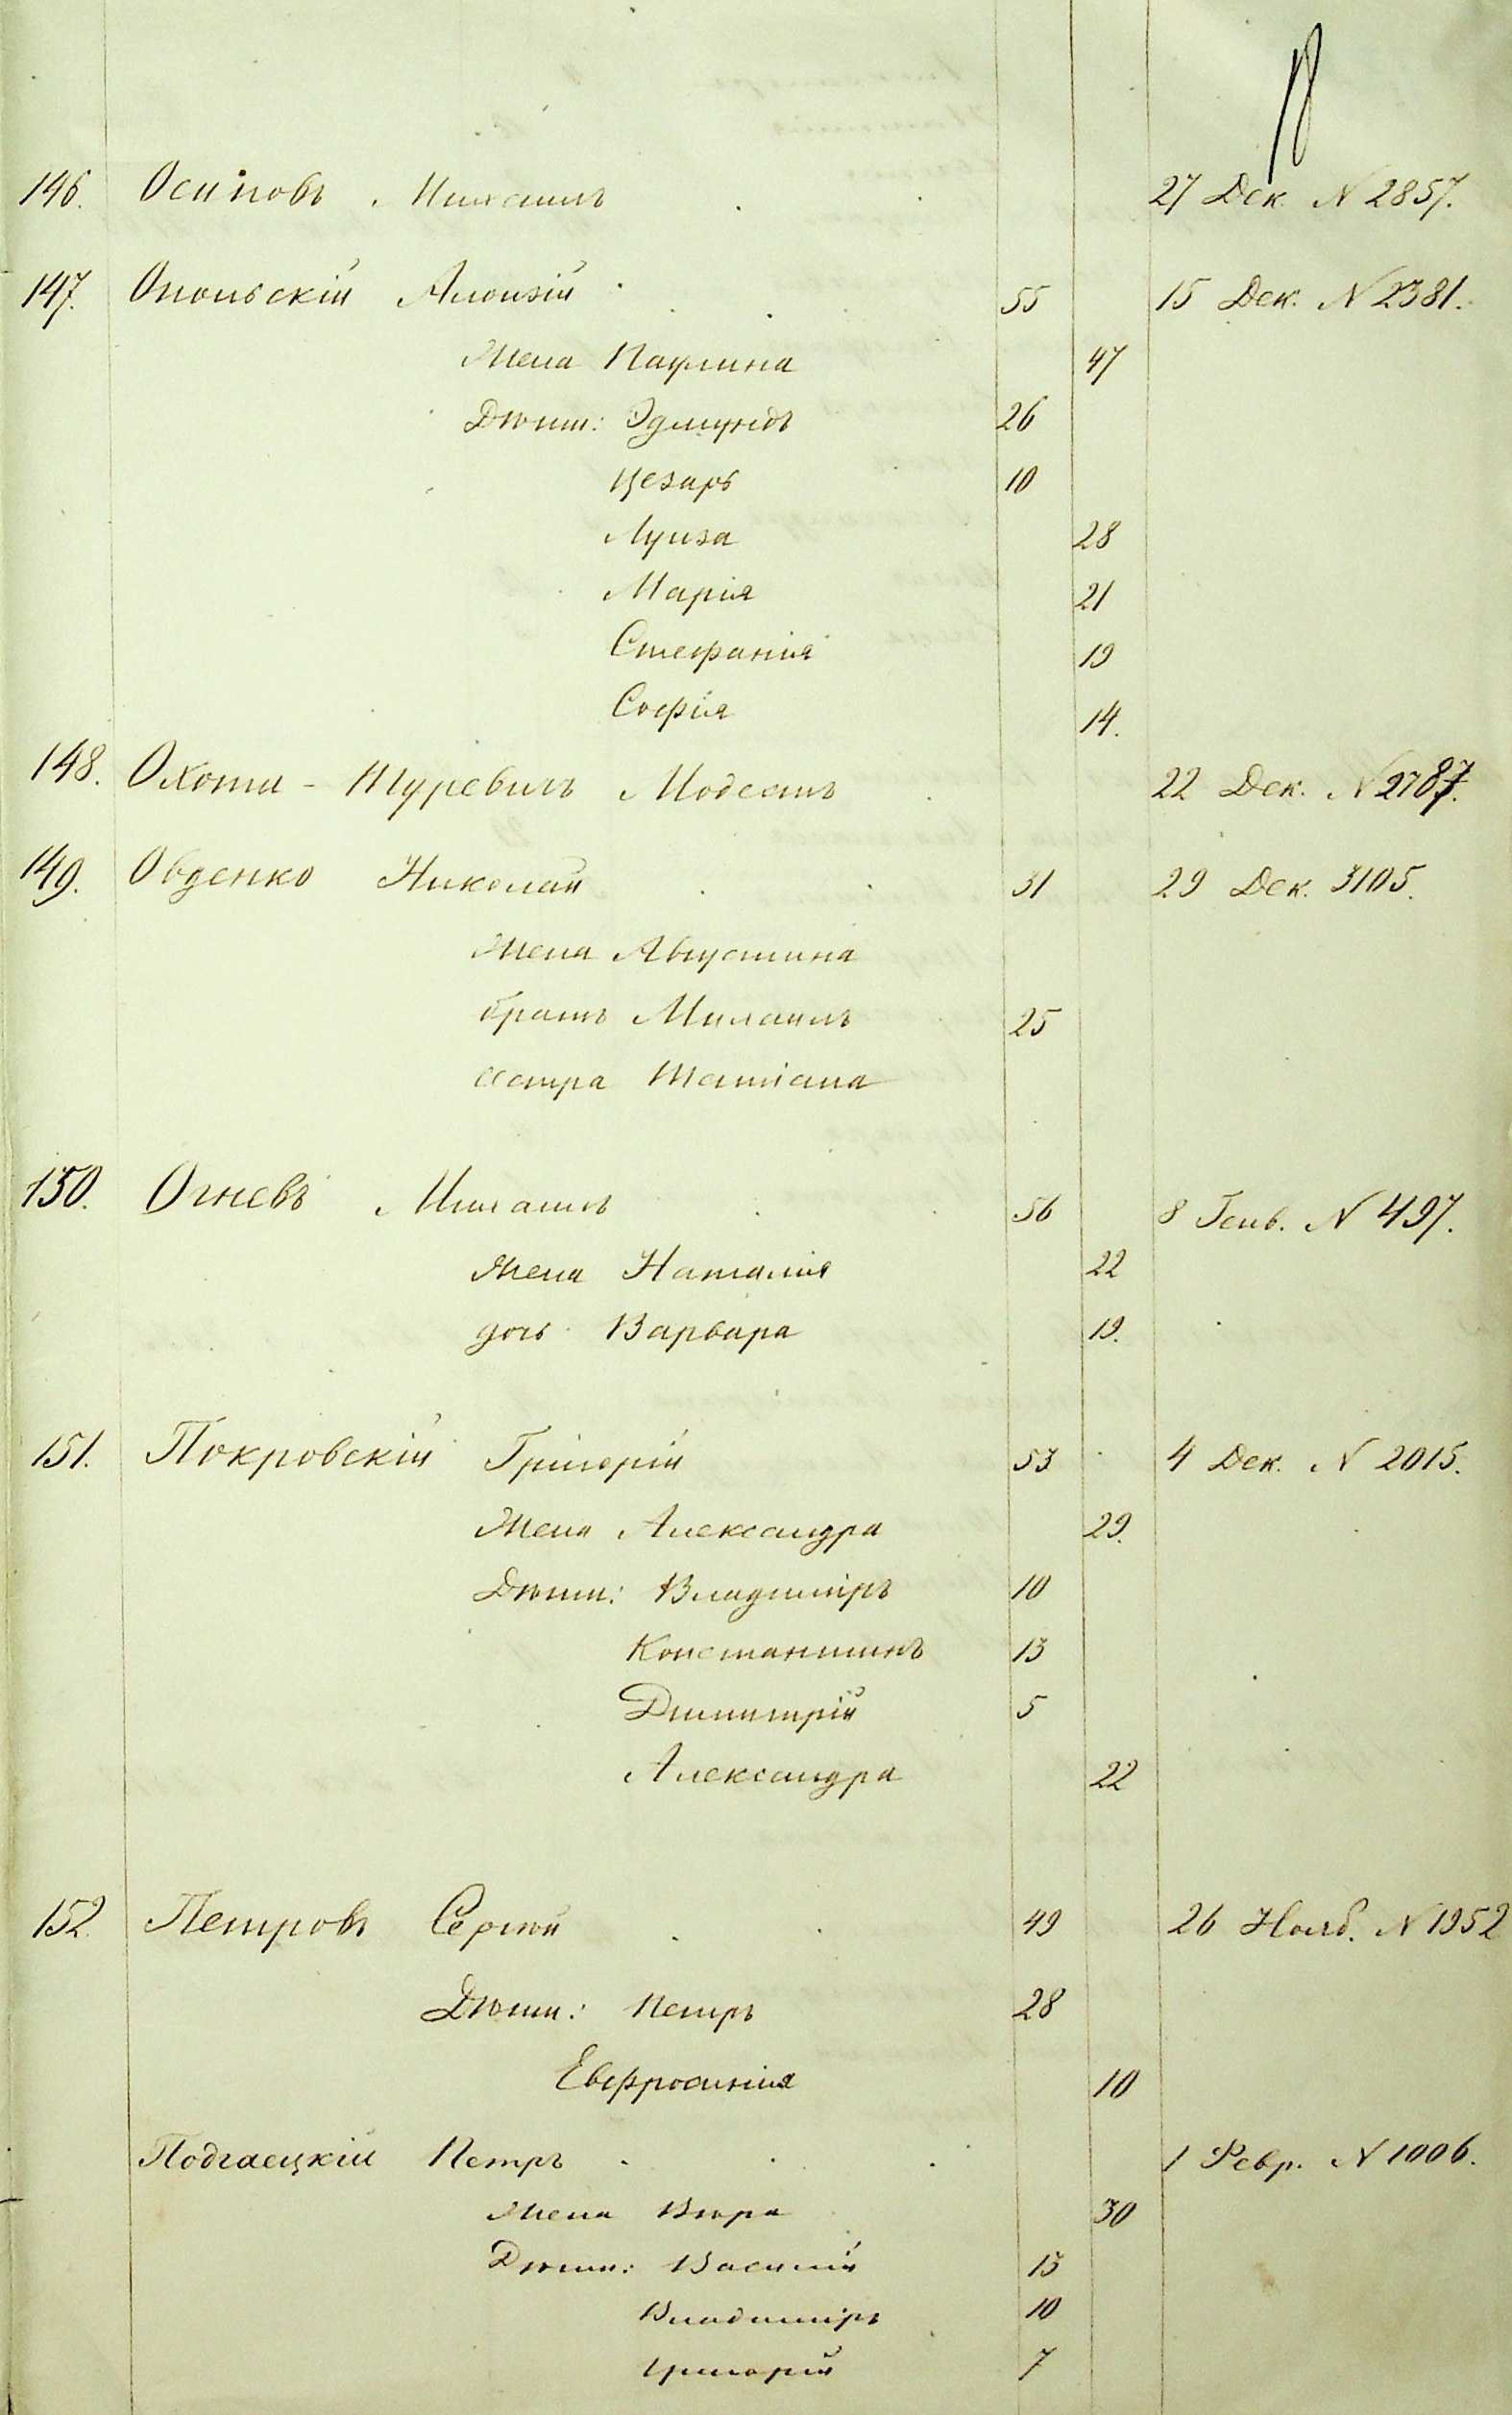 18
146. Осиповъ Михаилъ 27 Дек. N 2857.
147. Опольскій Алоизій 55 15 Дек. N 2381.
Жена Паулина 47
Дѣти: Эдмундъ 26
Цезарь 10
Луиза 28
Марія 21
Стефанія 19
Софія 14.
148. Охоти - Шуревичъ Модестъ 22 Дек. N 2787.
149. Овденко Николай 31 29 Дек. 3105.
Жена Августина
братъ Михаилъ 25
сестра Татіана
150. Огневъ Михаилъ 56 8 Генв. N 497.
Жена Наталія 22
дочь Варвара 19.
151. Покровскій Григорій 53 4 Дек. N 2015.
Жена Александра 29.
Дѣти: Владиміръ 10
Константинъ 13
Димитрій 5
Александра 22
152. Петровъ Сергѣй 49 26 Нояб. N 1952
Дѣти: Петръ 28
Евфросинія 10
Подгаецкій Петръ 1 Февр. N 1006.
Жена Вѣра 30
Дѣти: Василій 13
Владиміръ 10
Григорій 7